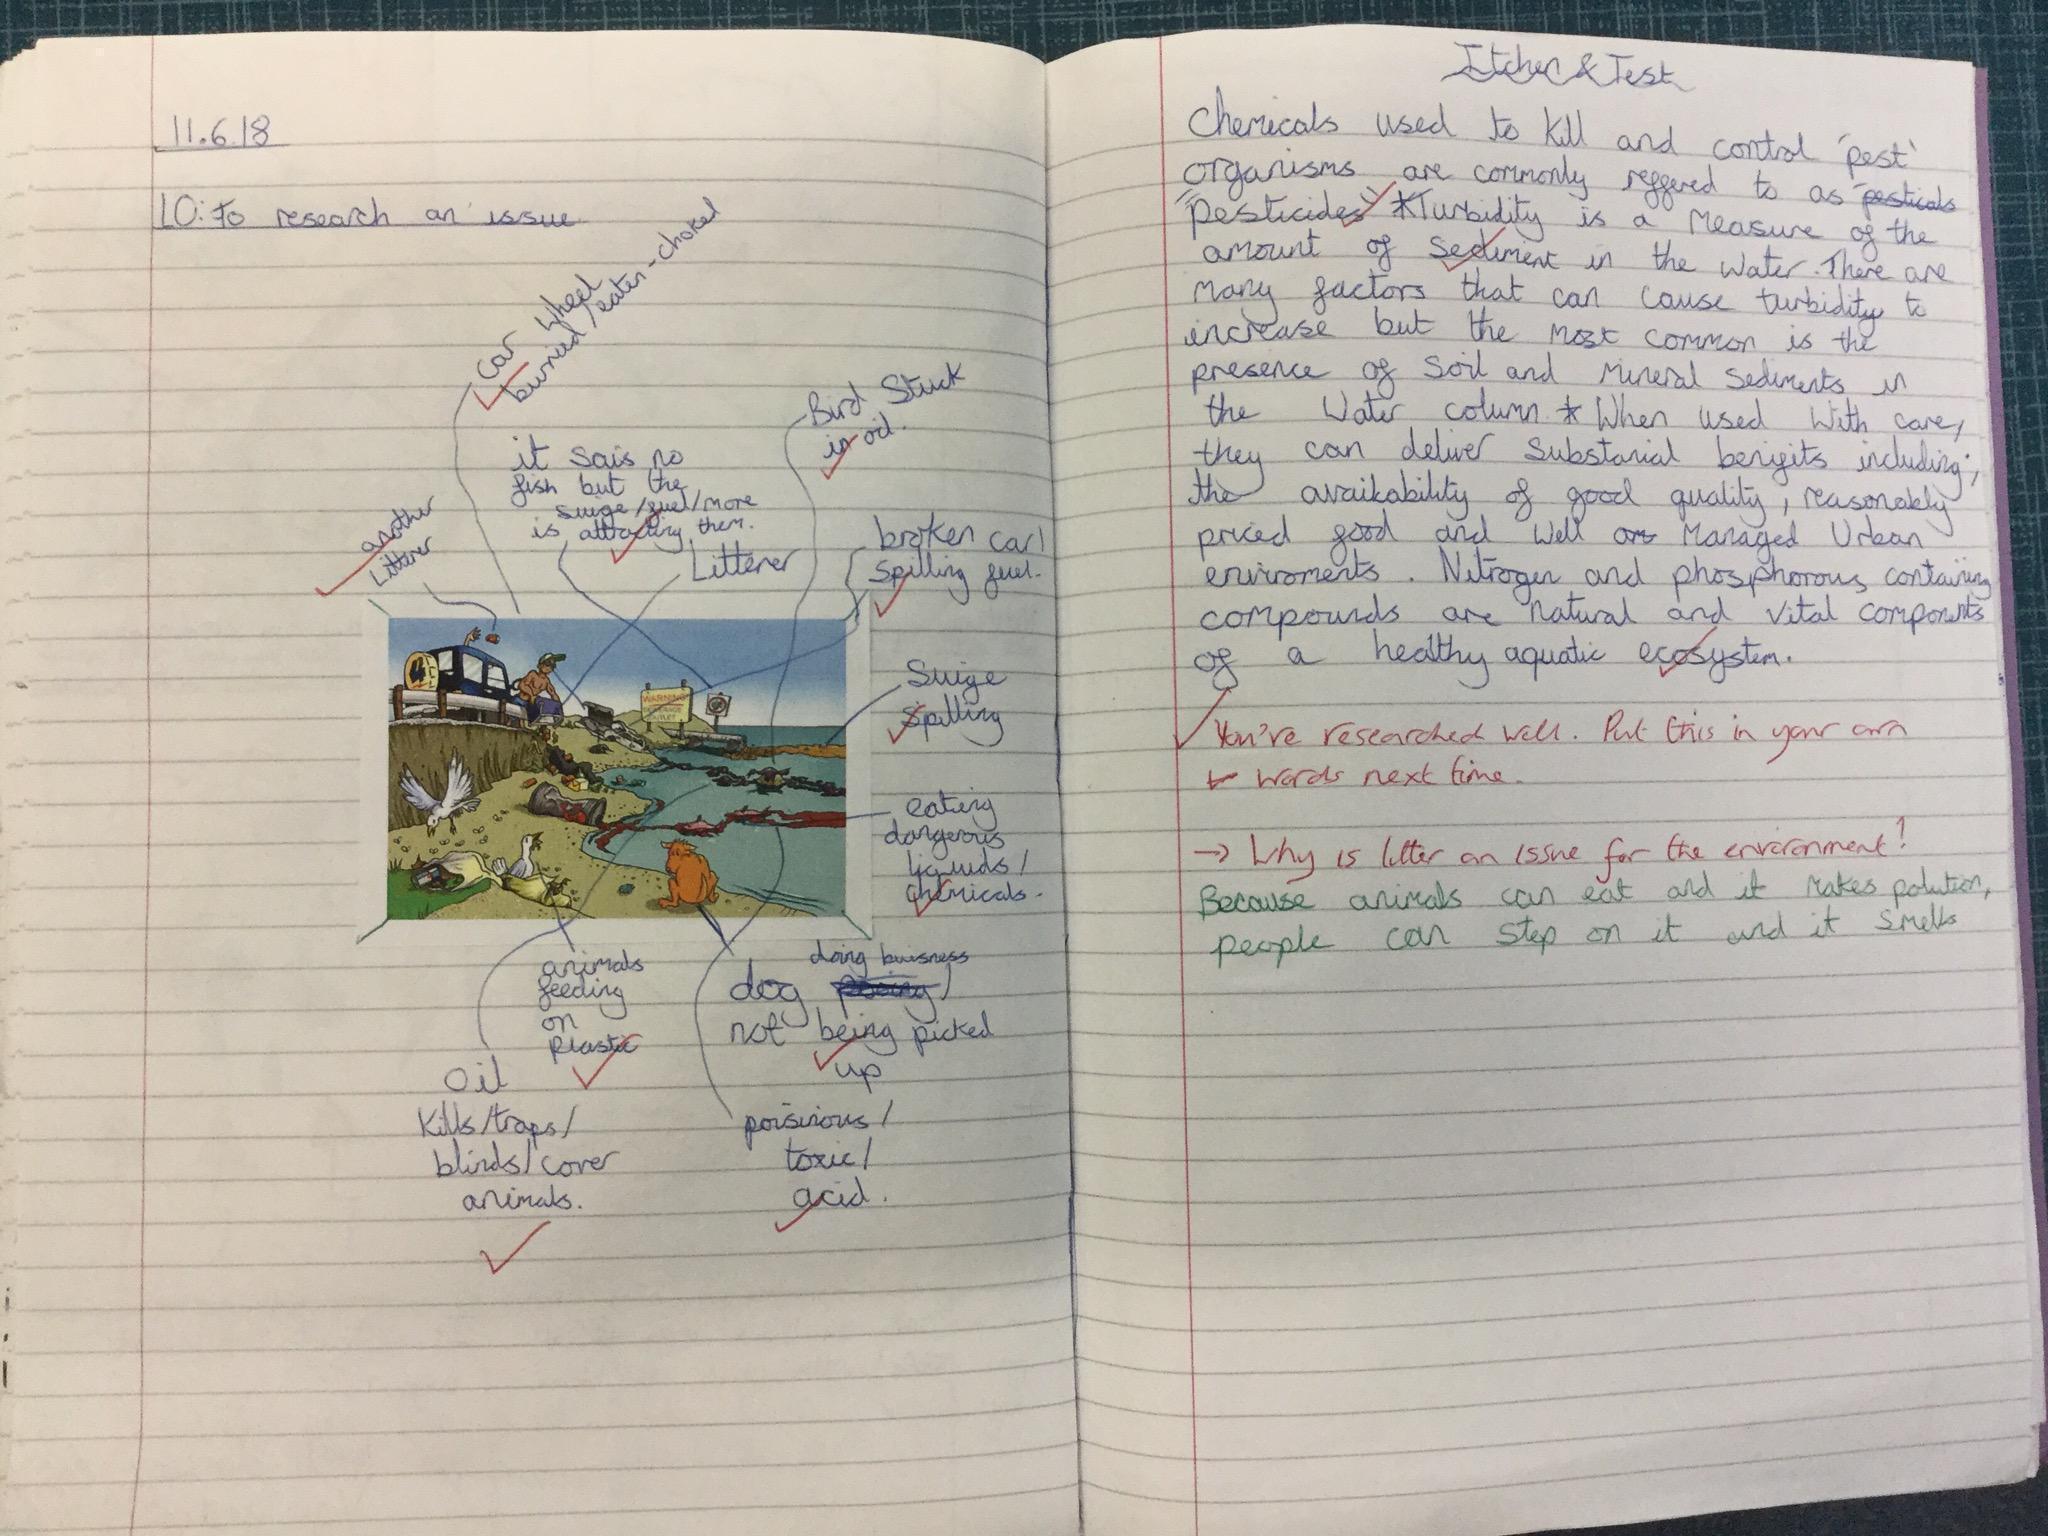 11.6.18
LO: To research an issue
car wheel
burnied/eaten-choked
Bird Stuck
in oil.
it sais no
fish but the
suige/fuel/more
is attracting them.
another
litterer
Litterer
broken car/
spilling fuel.
Suige
spilling
eating
dangerous
liquids/
chemicals.
WARNING
animals
feeding
on
plastic
doing buisness
dog
not being picked
up
oil
Kills/traps/
blinds/cover
animals.
poisinous/
toxic/
acid.
Itchen & Test
Chemicals used to kill and control 'pest'
organisms are commonly reffered to as pesticals
"pesticides" *Turbidity is a Measure of the
amount of Sediment in the water. There are
many factors that can cause turbidity to
increase but the most common is the
presence of Soil and Mineral Sediments in
the Water column * When used With care,
they can deliver Substanial benifits including;
the availability of good quality, reasonably
priced good and Well Managed Urban
enviroments. Nitrogen and phosphorous containing
compounds are natural and vital components
of a healthy aquatic ecosystem.
You've researched well. Put this in your own
words next time.
→ Why is litter an issue for the environment?
Because animals can eat and it makes polution,
people can step on it and it smells